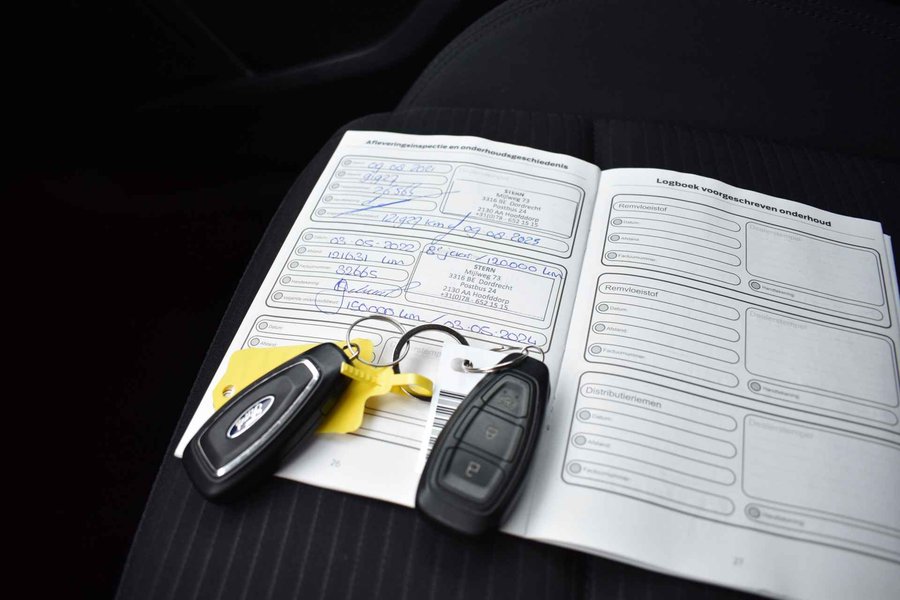 Afleveringsinspectie en onderhoudsgeschiedenis
09.08.2021
STERN
Mijlweg 73
3316 BE Dordrecht
Postbus 24
2130 AA Hoofddorp
+31(0)78 - 652 15 15
Datum
03-05-2022
121631 km
Factuurnummer
32665
8 jaar / 120.000 km
STERN
Mijlweg 73
3316 BE Dordrecht
Postbus 24
2130 AA Hoofddorp
+31(0)78 - 652 15 15
150000 km / 03-05-2024
Datum
Afstand
26
Logboek voorgeschreven onderhoud
Remvloeistof
Datum
Afstand
Factuurnummer
Dealerstempel
Handtekening
Remvloeistof
Datum
Afstand
Factuurnummer
Dealerstempel
Handtekening
Distributieriemen
Datum
Afstand
Factuurnummer
Dealerstempel
Handtekening
27